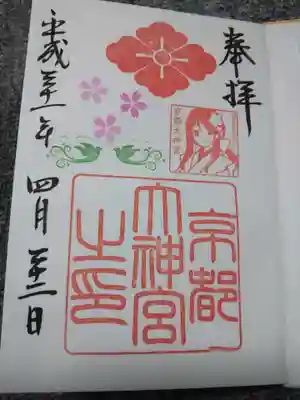 奉拝
京都大神宮
京都
大神宮
之印
平成三十一年 四月 二十二日